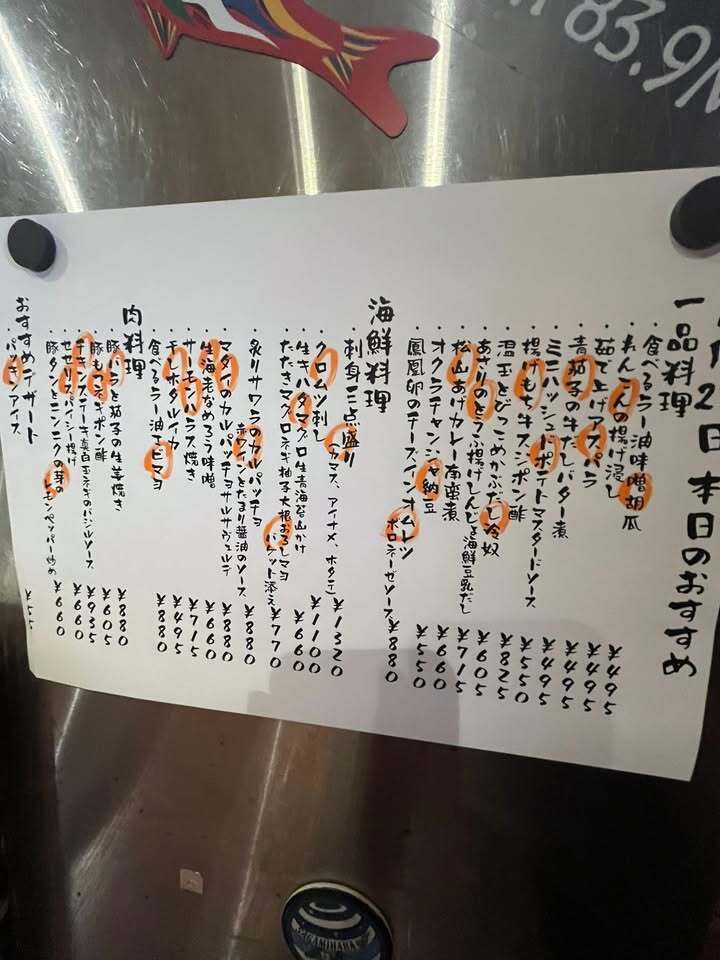 83.9
2日 本日のおすすめ
一品料理
・食べるラー油味噌胡瓜 ¥495
・れんこんの揚げ浸し ¥495
・茹で上げアスパラ ¥495
・青茄子の牛だしバター煮 ¥495
・ミニハッシュドポテトマスタードソース ¥550
・揚げもち キスンポン酢 ¥825
・温玉 めかぶだし冷奴 ¥605
・あさりのとうふ揚げしんじょう海鮮豆乳だし ¥715
・松山あげカレー南蛮煮 ¥660
・オクラチャンジャ納豆 ¥550
・鳳凰卵のチーズインオムレツ ボロネーゼソース ¥880
海鮮料理
・刺身三点盛り(アイナメ、ホタテ) ¥1320
・クロムツ刺し ¥1100
・生キハダマグロ生青海苔山かけ ¥660
・たたきマグロネギ柚子大根おろしマヨ バケット添え ¥770
・炙りサワラのカルパッチョ 赤ワインとたまり醤油のソース ¥880
・マダイのカルパッチョサルサヴェルデ ¥880
・生海老なめろう味噌 ¥660
・サーモンハラス焼き ¥715
・チレホタルイカ ¥495
・食べるラー油エビマヨ ¥880
肉料理
・豚バラと茄子の生姜焼き ¥880
・豚もも ポン酢 ¥605
・チキンステーキ真白玉ネギのバジルソース ¥935
・セセリスパイシー揚げ ¥660
・豚タンとニンニクの芽の レモンペッパー炒め ¥660
おすすめデザート
・アイス ¥55
SAGAMIHARA